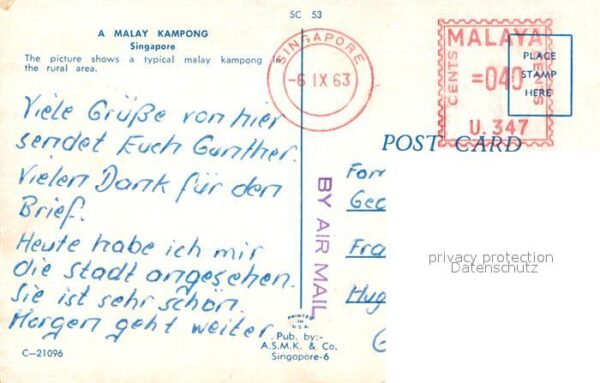 SC 53
A MALAY KAMPONG
Singapore
The picture shows a typical malay kampong in
the rural area.
SINGAPORE
-6 IX 63
MALAYA
CENTS
=040
SENES
U. 347
PLACE
STAMP
HERE
POST CARD
Viele Grüße von hier
sendet Euch Günther.
Vielen Dank für den
Brief.
Heute habe ich mir
die Stadt angesehen.
Sie ist sehr schön.
Morgen geht weiter.
BY AIR MAIL
Fam
Geo
Fra
Hug
privacy protection
Datenschutz
PRINTED IN
U.S.A.
Pub. by:-
A.S.M.K. & Co.
Singapore-6
C-21096